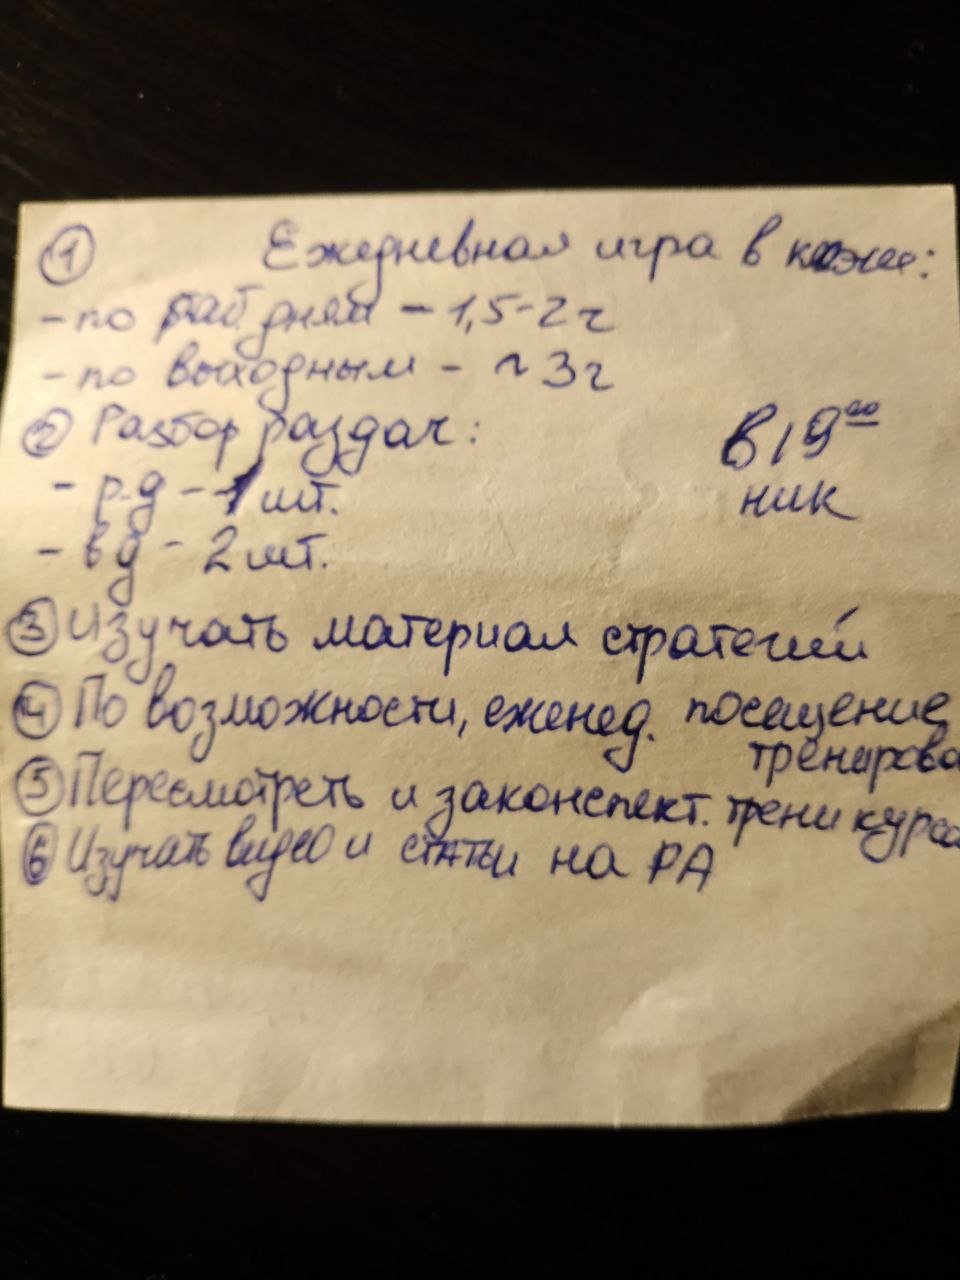 ① Ежедневная игра в кэше:
- по раб. дням - 1,5-2 ч
- по выходным - ~ 3 ч
② Разбор раздач:
- р.д - 1 шт.
- вд - 2 шт.
в 19⁰⁰
ник
③ Изучать материал стратегий
④ По возможности, еженед. посещение
тренирово
⑤ Пересмотреть и законспект. трени курса
⑥ Изучать видео и статьи на РА